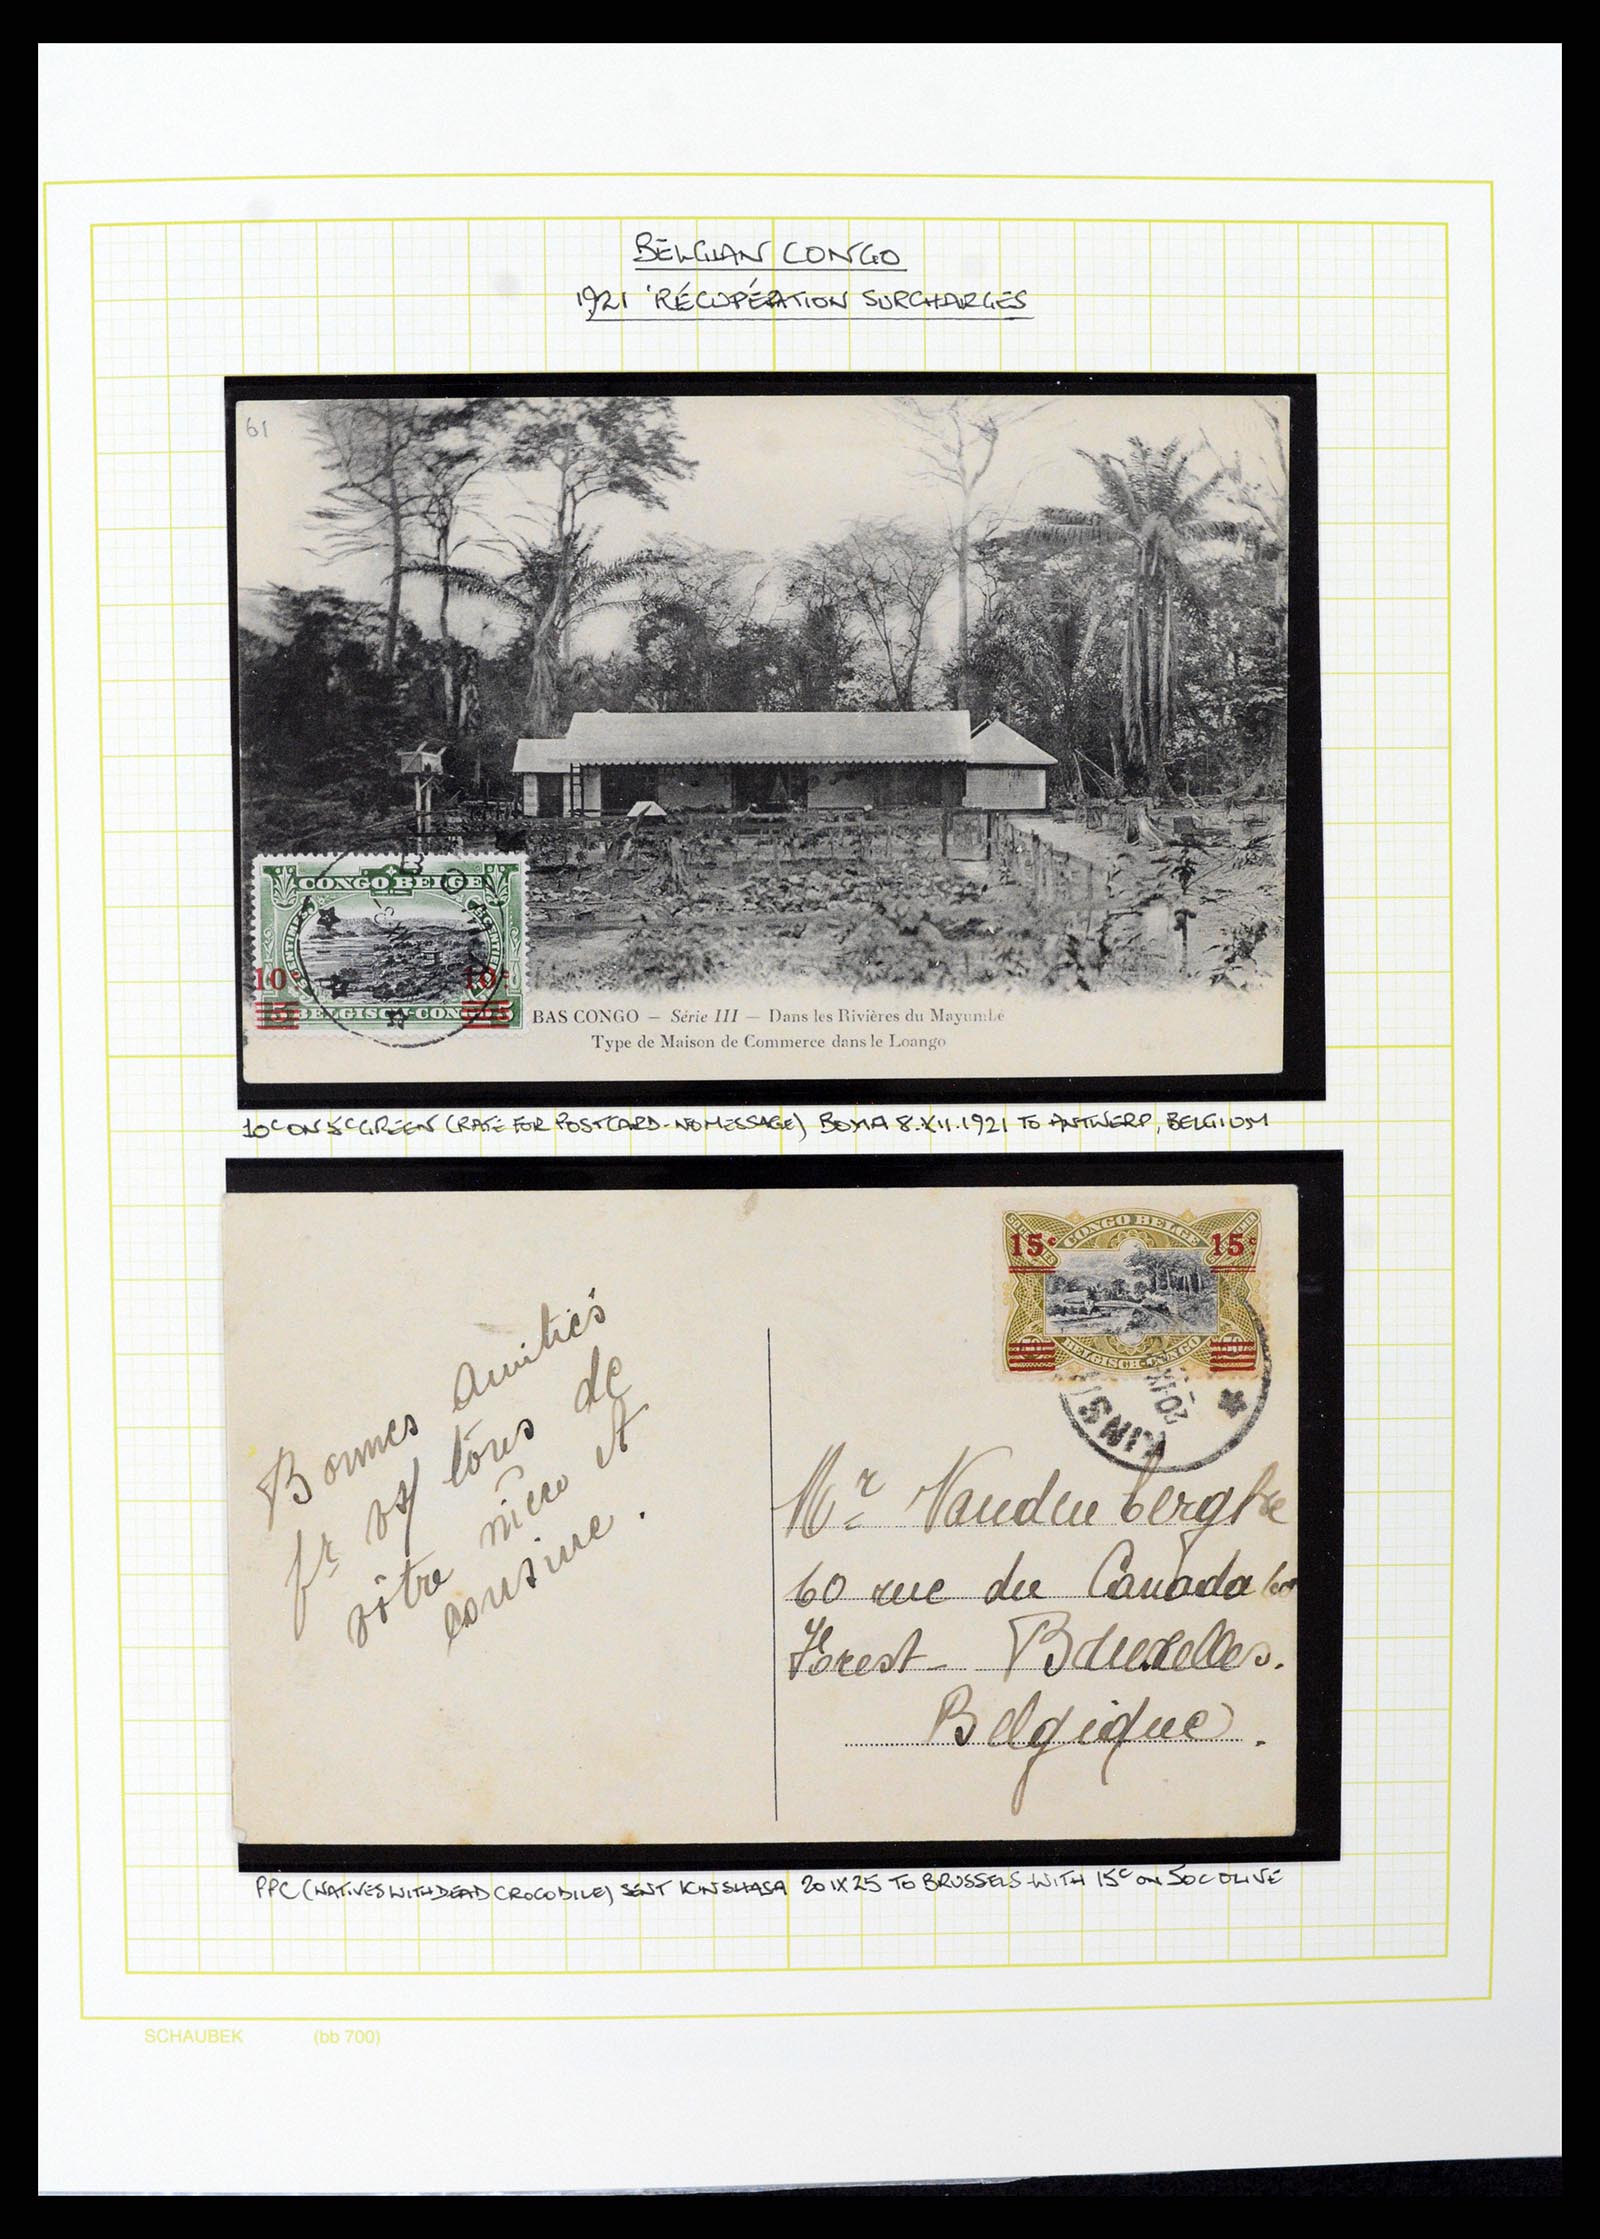 BELGIAN CONGO
1921 'RÉCUPÉRATION SURCHARGES
61
CONGO BELGE
10c 10c
5 BELGISCH-CONGO 5
BAS CONGO — Série III — Dans les Rivières du Mayumbe
Type de Maison de Commerce dans le Loango
10c ON 5c GREEN (RATE FOR POSTCARD - NO MESSAGE) BOMA 8.XII.1921 TO ANTWERP, BELGIUM
CONGO BELGE
15c 15c
BELGISCH-CONGO
KINS
20-IX
Bonnes amitiés
pr vs tous de
vôtre nièce et
cousine.
Mr Vandenberghe
60 rue du Canada
Forest - Bruxelles.
Belgique.
PPC (NATIVES WITH DEAD CROCODILE) SENT KINSHASA 20 IX 25 TO BRUSSELS WITH 15c ON 50c OLIVE
SCHAUBEK (bb 700)